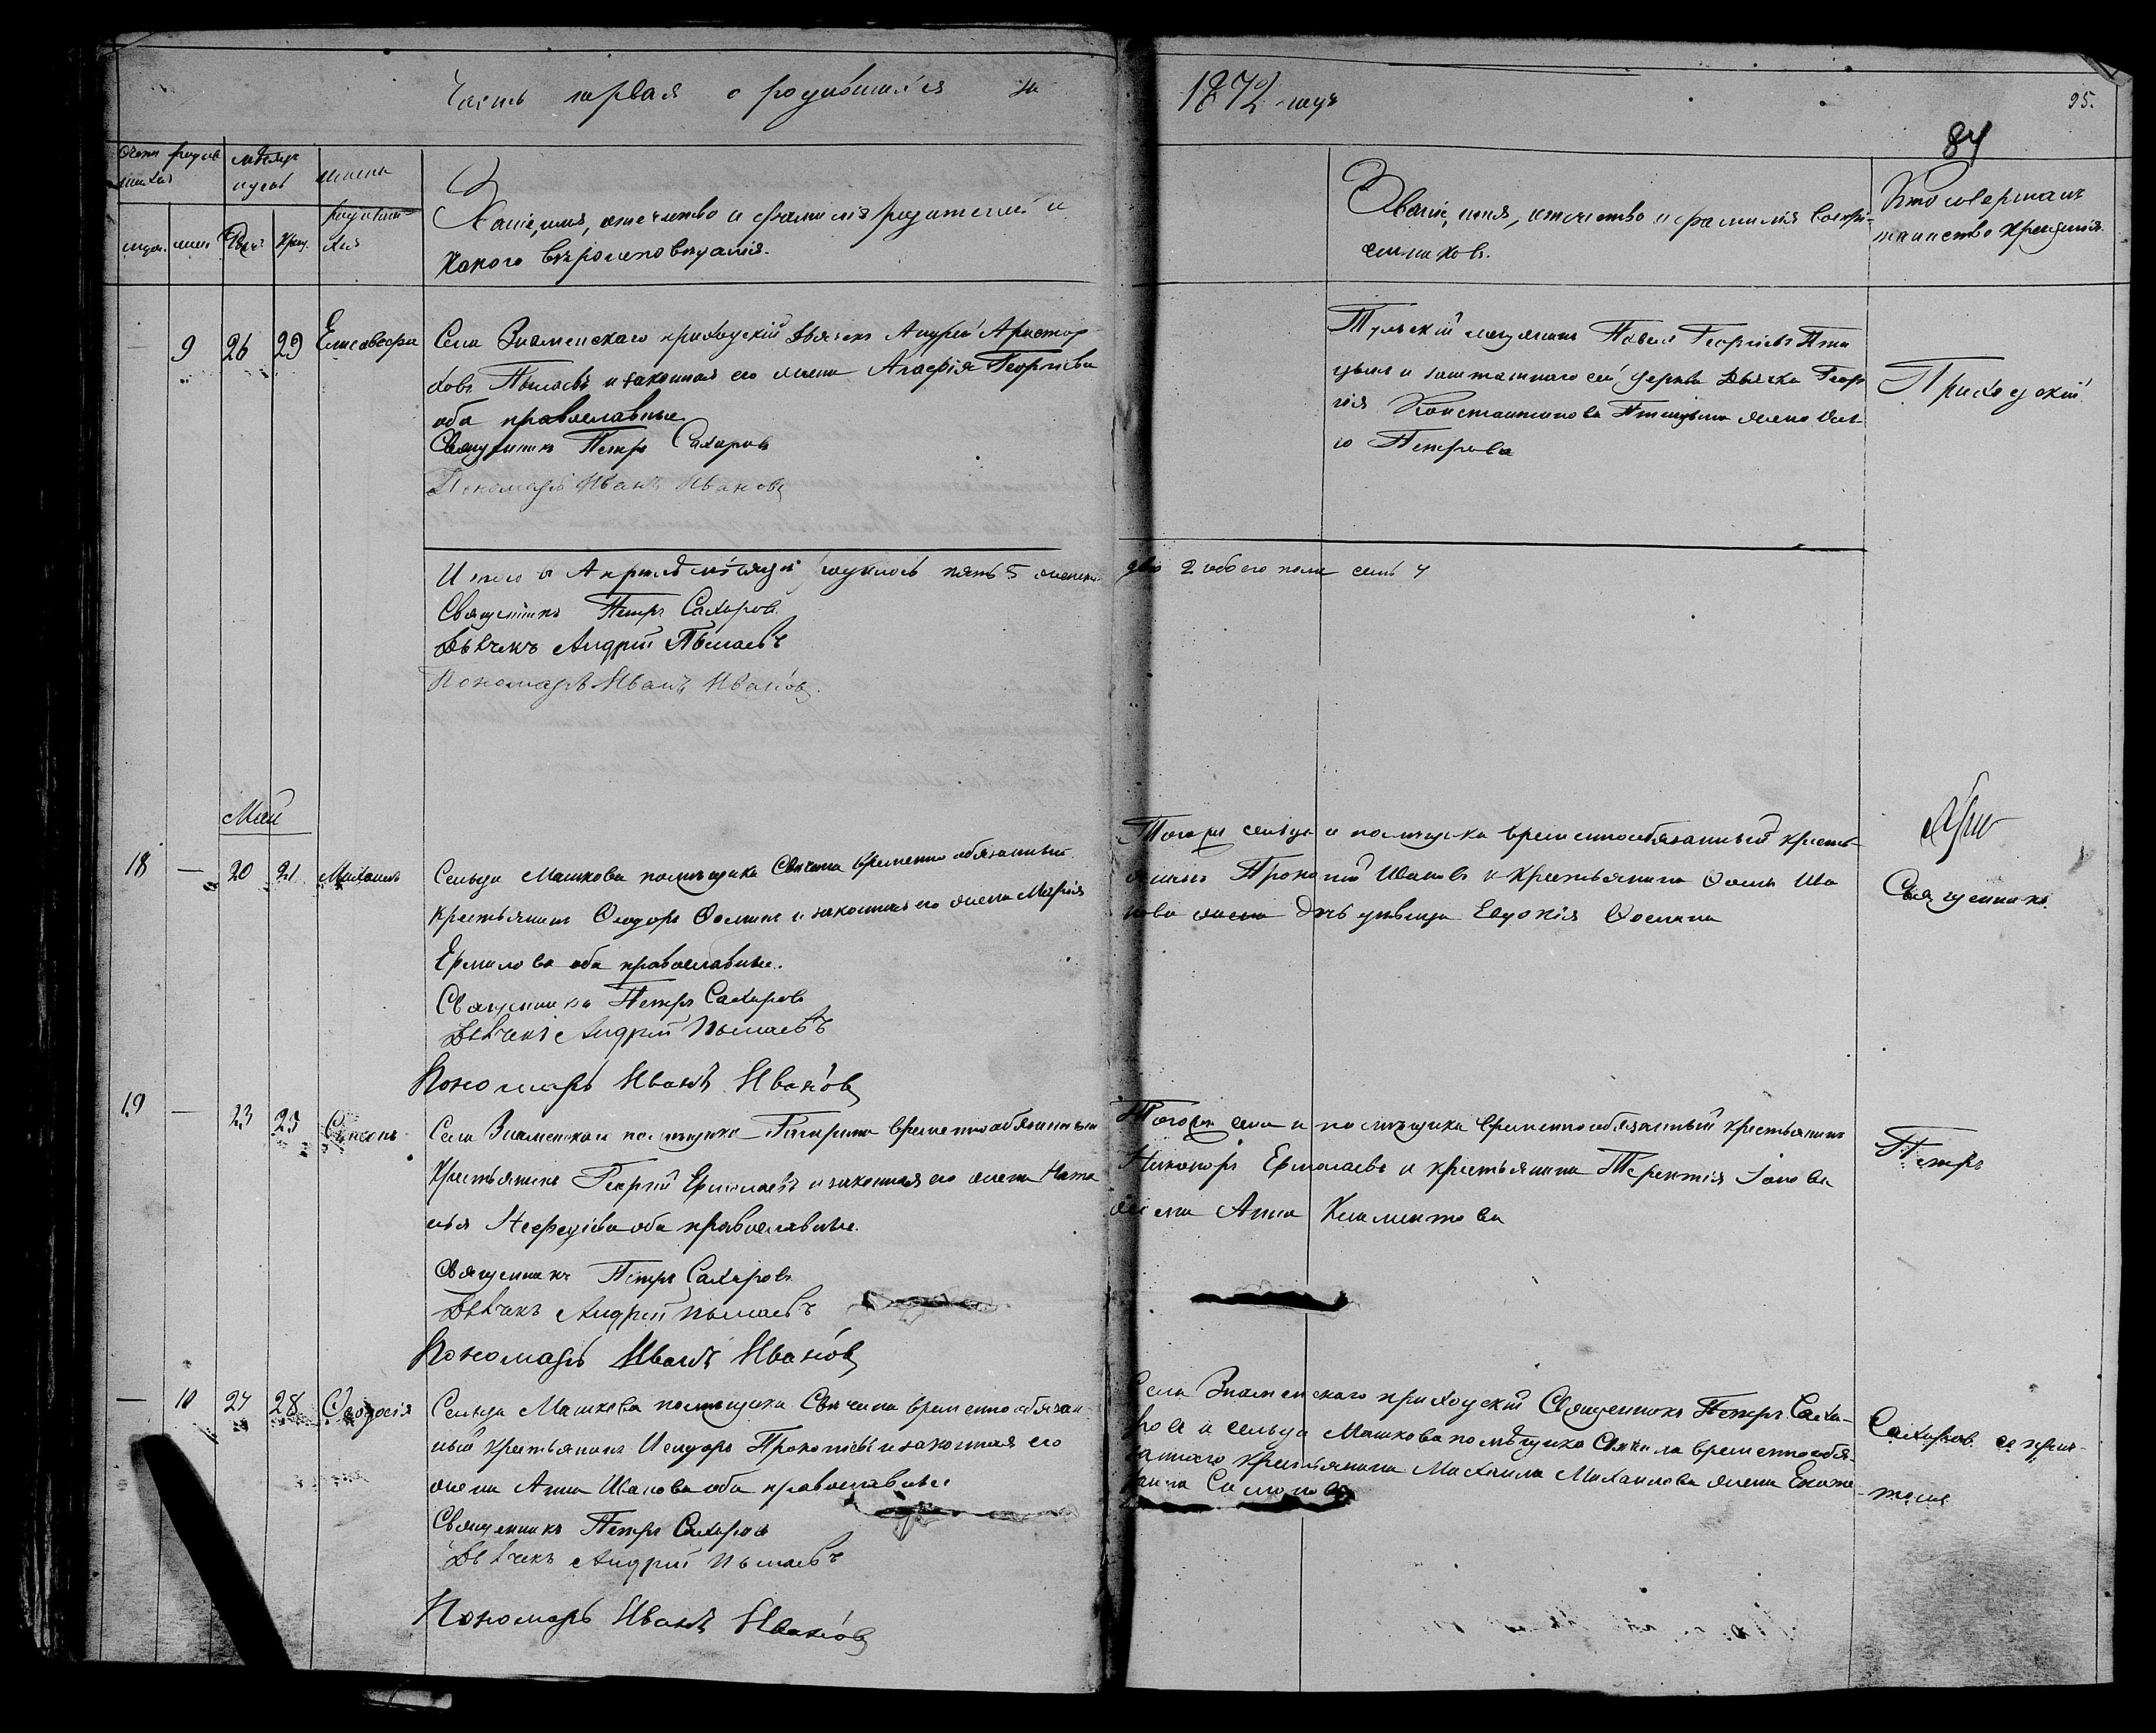 Часть первая о родившихся за 1872 годъ
95.
84
Счетъ родив
шихся
Мѣсяцъ
и день
Имена
родивши
хся
муж. жен. Рожд. Крещ.
Званіе, имя, отечество и фамилія родителей и
какого вѣроисповѣданія.
Званіе, имя, отечество и фамилія воспрі-
емниковъ.
Кто совершалъ
таинство крещенія.
9 26 29 Елисавефа
Села Знаменскаго приходскій дьячекъ Андрей Аристар
ховъ Пылаевъ и законная его жена Агафія Георгіева
оба православные
Священникъ Петръ Сахаровъ
Пономарь Иванъ Ивановъ
Тульскій мещанинъ Павелъ Георгіевъ Пти
цынъ и заштатнаго сей церкви дьячка Геор
гія Константинова Птицына жена
Петрова
Приходскій
Итого в Апрелѣ мѣсяцѣ родилось пять 5 женска два 2 обоего пола семь 7
Священникъ Петръ Сахаровъ
Дьячекъ Андрей Пылаевъ
Пономарь Иванъ Ивановъ.
Май
18 — 20 21 Михаилъ
Сельца Машкова помѣщика Свѣчина временнообязанный
крестьянинъ Ѳеодоръ Ѳоминъ и законная его жена Марѳія
Ермилова оба православные.
Священникъ Петръ Сахаровъ
Дьячекъ Андрей Пылаевъ
Пономарь Иванъ Ивановъ
Тогоже сельца и помѣщика временнообязанный кресть-
янинъ Прокопій Ивановъ и крестьянина Ѳомы Ива
нова дочь дѣвица Евдокія Ѳомина
Священникъ
19 — 23 25 Симеонъ
Села Знаменскаго помѣщика временнообязанный
крестьянинъ Георгій Ермолаевъ и законная его жена Ната
лія Меѳодіева оба православные.
Священникъ Петръ Сахаровъ
Дьячекъ Андрей Пылаевъ
Пономарь Иванъ Ивановъ
Тогоже села и помѣщика временнообязанный крестьянинъ
Никаноръ Ермолаевъ и крестьянина Терентія Іонова
жена Анна Климентова
Петръ
— 10 27 28 Ѳеодосія
Сельца Машкова помѣщика Свѣчина временнообязан
ный крестьянинъ Исидоръ Прокопіевъ и законная его
жена Анна Иванова оба православные
Священникъ Петръ Сахаровъ
Дьячекъ Андрей Пылаевъ
Пономарь Иванъ Ивановъ
Села Знаменскаго приходскій Священникъ Петръ Саха-
ровъ и сельца Машкова помѣщика Свѣчина временнообя-
заннаго крестьянина Михаила Михаилова жена Екате-
рина
Сахаровъ съ прич-
томъ